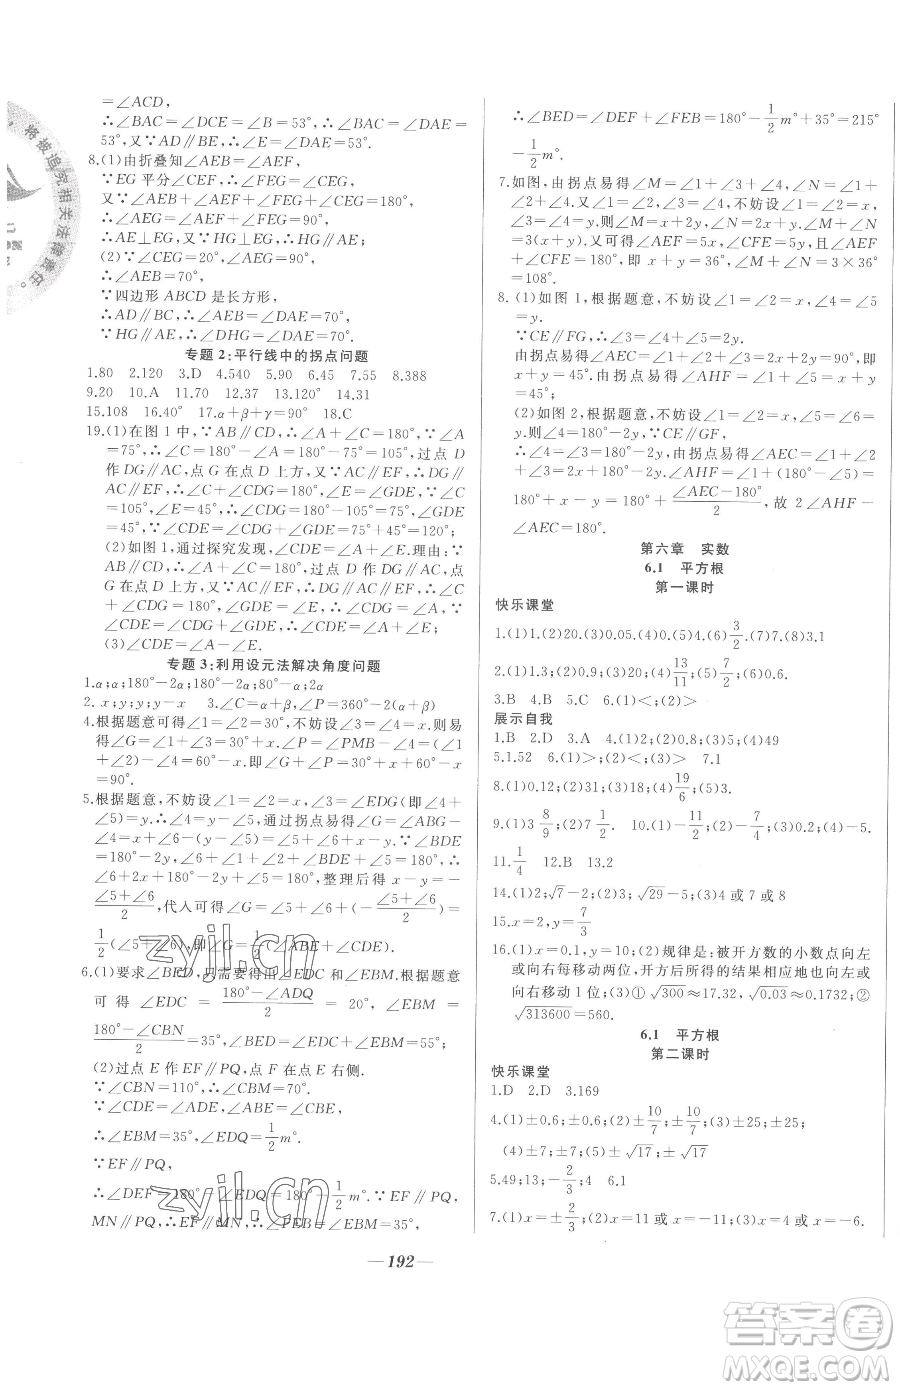 =∠ACD,
∴∠BAC=∠DCE=∠B=53°,∴∠BAC=∠DAE=
53°,又∵AD∥BE,∴∠B=∠DAE=53°.
8.(1)由折叠知∠AEB=∠AEF,
∵EG平分∠CEF,∴∠FEG=∠CEG,
又∵∠AEB+∠AEF+∠FEG+∠CEG=180°,
∴∠AEG=∠AEF+∠FEG=90°,
∴AE⊥EG,又∵HG⊥EG,∴HG∥AE;
(2)∵∠CEG=20°,∠AEG=90°,
∴∠AEB=70°,
∵四边形ABCD是长方形,
∴AD∥BC,∴∠AEB=∠DAE=70°,
∵HG∥AE,∴∠DHG=∠DAE=70°.
专题2:平行线中的拐点问题
1.80 2.120 3.D 4.540 5.90 6.45 7.55 8.388
9.20 10.A 11.70 12.37 13.120° 14.31
15.108 16.40° 17.α+β+γ=90° 18.C
19.(1)在图1中,∵AB∥CD,∴∠A+∠C=180°,∵∠A
=75°,∴∠C=180°-∠A=180°-75°=105°,过点D
作DG∥AC,点G在点D上方,又∵AC∥EF,∴DG∥AC
∥EF,∴∠C+∠CDG=180°,∠E=∠GDE,∵∠C=
105°,∴∠CDG=180°-105°=75°,∵∠GDE=∠E,
∠E=45°,∵∠CDE=∠CDG+∠GDE=75°+45°
=120°;
(2)如图1,通过探究发现,∠CDE=∠A+∠E.理由:∵
AB∥CD,∴∠A+∠C=180°,过点D作DG∥AC,点G
在点D上方,又∵AC∥EF,∴DG∥AC∥EF,∴∠C+
∠CDG=180°,∠GDE=∠E,∴∠CDG=∠A,∵
∠CDE=∠CDG+∠GDE,∴∠CDE=∠A+∠E;
(3)∠CDE=∠A-∠E.
专题3:利用设元法解决角度问题
1.α;α;180°-2α;180°-2α;80°-α;2α
2. x;y;y;y-x 3.∠C=α+β,∠P=360°-2(α+β)
4.根据题意可得∠1=∠2=30°,不妨设∠3=∠4=x.则易
得∠G=∠1+∠4=30°+x,∠P=∠PMB-∠4=(∠1
+∠2)-∠4=60°-x,故∠G+∠P=30°+x+60°-x=
90°.
5.根据题意,不妨设∠1=∠2=x,∠3=∠EDG(即∠4
+∠5)=y.∴∠4=y-∠5,通过拐点易得∠G=∠ABG-
∠4=x+∠6-(y-∠5)=x-y+∠5+∠6,∵∠BDE
=180°-2y,∠DBE=180°-2x,∠BED=∠BDE,∴
∠6+2x+180°-2y=180°,整理后得∠G=-
∠5+∠6/2,代入可得∠G=∠5+∠6+(-∠5+∠6/2)=
1/2(∠5+∠6),即∠G=1/2(∠ABE+∠CDE).
6.(1)要求∠BED,只需要得出∠EDC和∠EBM.根据题意
可得∠EDC=180°-∠ADQ/2=20°,∠EBM=
180°-∠CBN/2=35°,∠BED=∠EDC+∠EBM=55°;
(2)过点E作EF∥PQ,点F在点E右侧.
∵∠CBN=110°,∴∠CBM=70°.
∵∠CDE=∠ADE,∠ABE=∠CBE,
∴∠EBM=35°,∠EDQ=1/2m°.
∵EF∥PQ,
∴∠DEF=180°-∠EDQ=180°-1/2m°.∵EF∥PQ,
MN∥PQ,∴EF∥MN.∴∠FEB=∠EBM=35°,
∴∠BED=∠DEF+∠FEB=180°-1/2m°+35°=215°
-1/2m°.
7.如图,由拐点易得∠M=∠1+∠3+∠4,∠N=∠1+∠2
+∠3,又∵2∠M=∠N,不妨设∠1+∠2=x,∠3+∠4
=y.则∠M=x+2y,∠N=2x+y.∵由拐点易得∠AEF
+∠CFE=180°,∴∠AEF=3x,∠CFE=3y,故∠AEF
+∠CFE=180°,即x=36°,∴∠AEF=3x=3×36°=
108°.
8.(1)如图1,根据题意,不妨设∠1=∠2=x,∠4=∠5
=y.
∵CE∥FG,∴∠3=∠4+∠5=2y.
∴由拐点易得∠AEC=∠1+∠2+∠3=2x+2y=90°,即
x+y=45°.由拐点易得∠AHF=∠1+∠4=x+y
=45°;
(2)如图2,根据题意,不妨设∠1=∠2=x,∠5=∠6=
y.则∠4=180°-2y,∵CE∥GF,
∴∠3=∠4=180°-2y.由拐点易得∠AEC=∠1+∠2
+∠3=2x+180°-2y.∠AHF=∠1+(180°-∠5)=
180°+x-y=180°+∠AEC-180°/2,故2∠AHF-
∠AEC=180°.
第六章 实数
6.1 平方根
第一课时
快乐课堂
1.(1)1.(2)20.(3)0.05.(4)4.(5)4.(6)3/2.(7)7.(8)3.1
2.(1)1.3;(2)60;(3)8;(4)13/11;(5)7/2;(6)0.6.
3.B 4.B 5.C 6.(1)<;(2)>
展示自我
1.B 2.D 3.A 4.(1)20;(2)0.8;(3)5;(4)49
5.1.52 6.(1)>;(2)<;(3)> 7.1
8.(1)0.1;(2)31;(3)0;(4)19/6;(5)3.
9.(1)3 8/9;(2)7 1/2. 10.(1)-11/2;(2)-7/2;(3)0.2;(4)-5.
11.1/4 12.B 13.2
14.(1)2;√7-2;(2)5;√29-5;(3)4或7或8
15.x=2,y=7/3
16.(1)x=0.1,y=10;(2)规律是:被开方数的小数点向左
或向右每移动两位,开方后所得的结果相应地也向左或
向右移动1位;(3)①√300≈17.32,√0.03≈0.1732;②
√313600=560.
6.1 平方根
第二课时
快乐课堂
1.D 2.D 3.169
4.(1)±0.6,±0.6;(2)±10/7;±10/7;(3)±25;±25;
(4)±7;±7;(5)±√17;±√17
5.49;13;-2/3;4 6.1
7.(1)x=±2/3;(2)x=11或x=-11;(3)x=3或x=-6.
—192—
将被追究相关法律责任。
zyjl.cn
zyjl.cn
答案圈
MXQE.COM